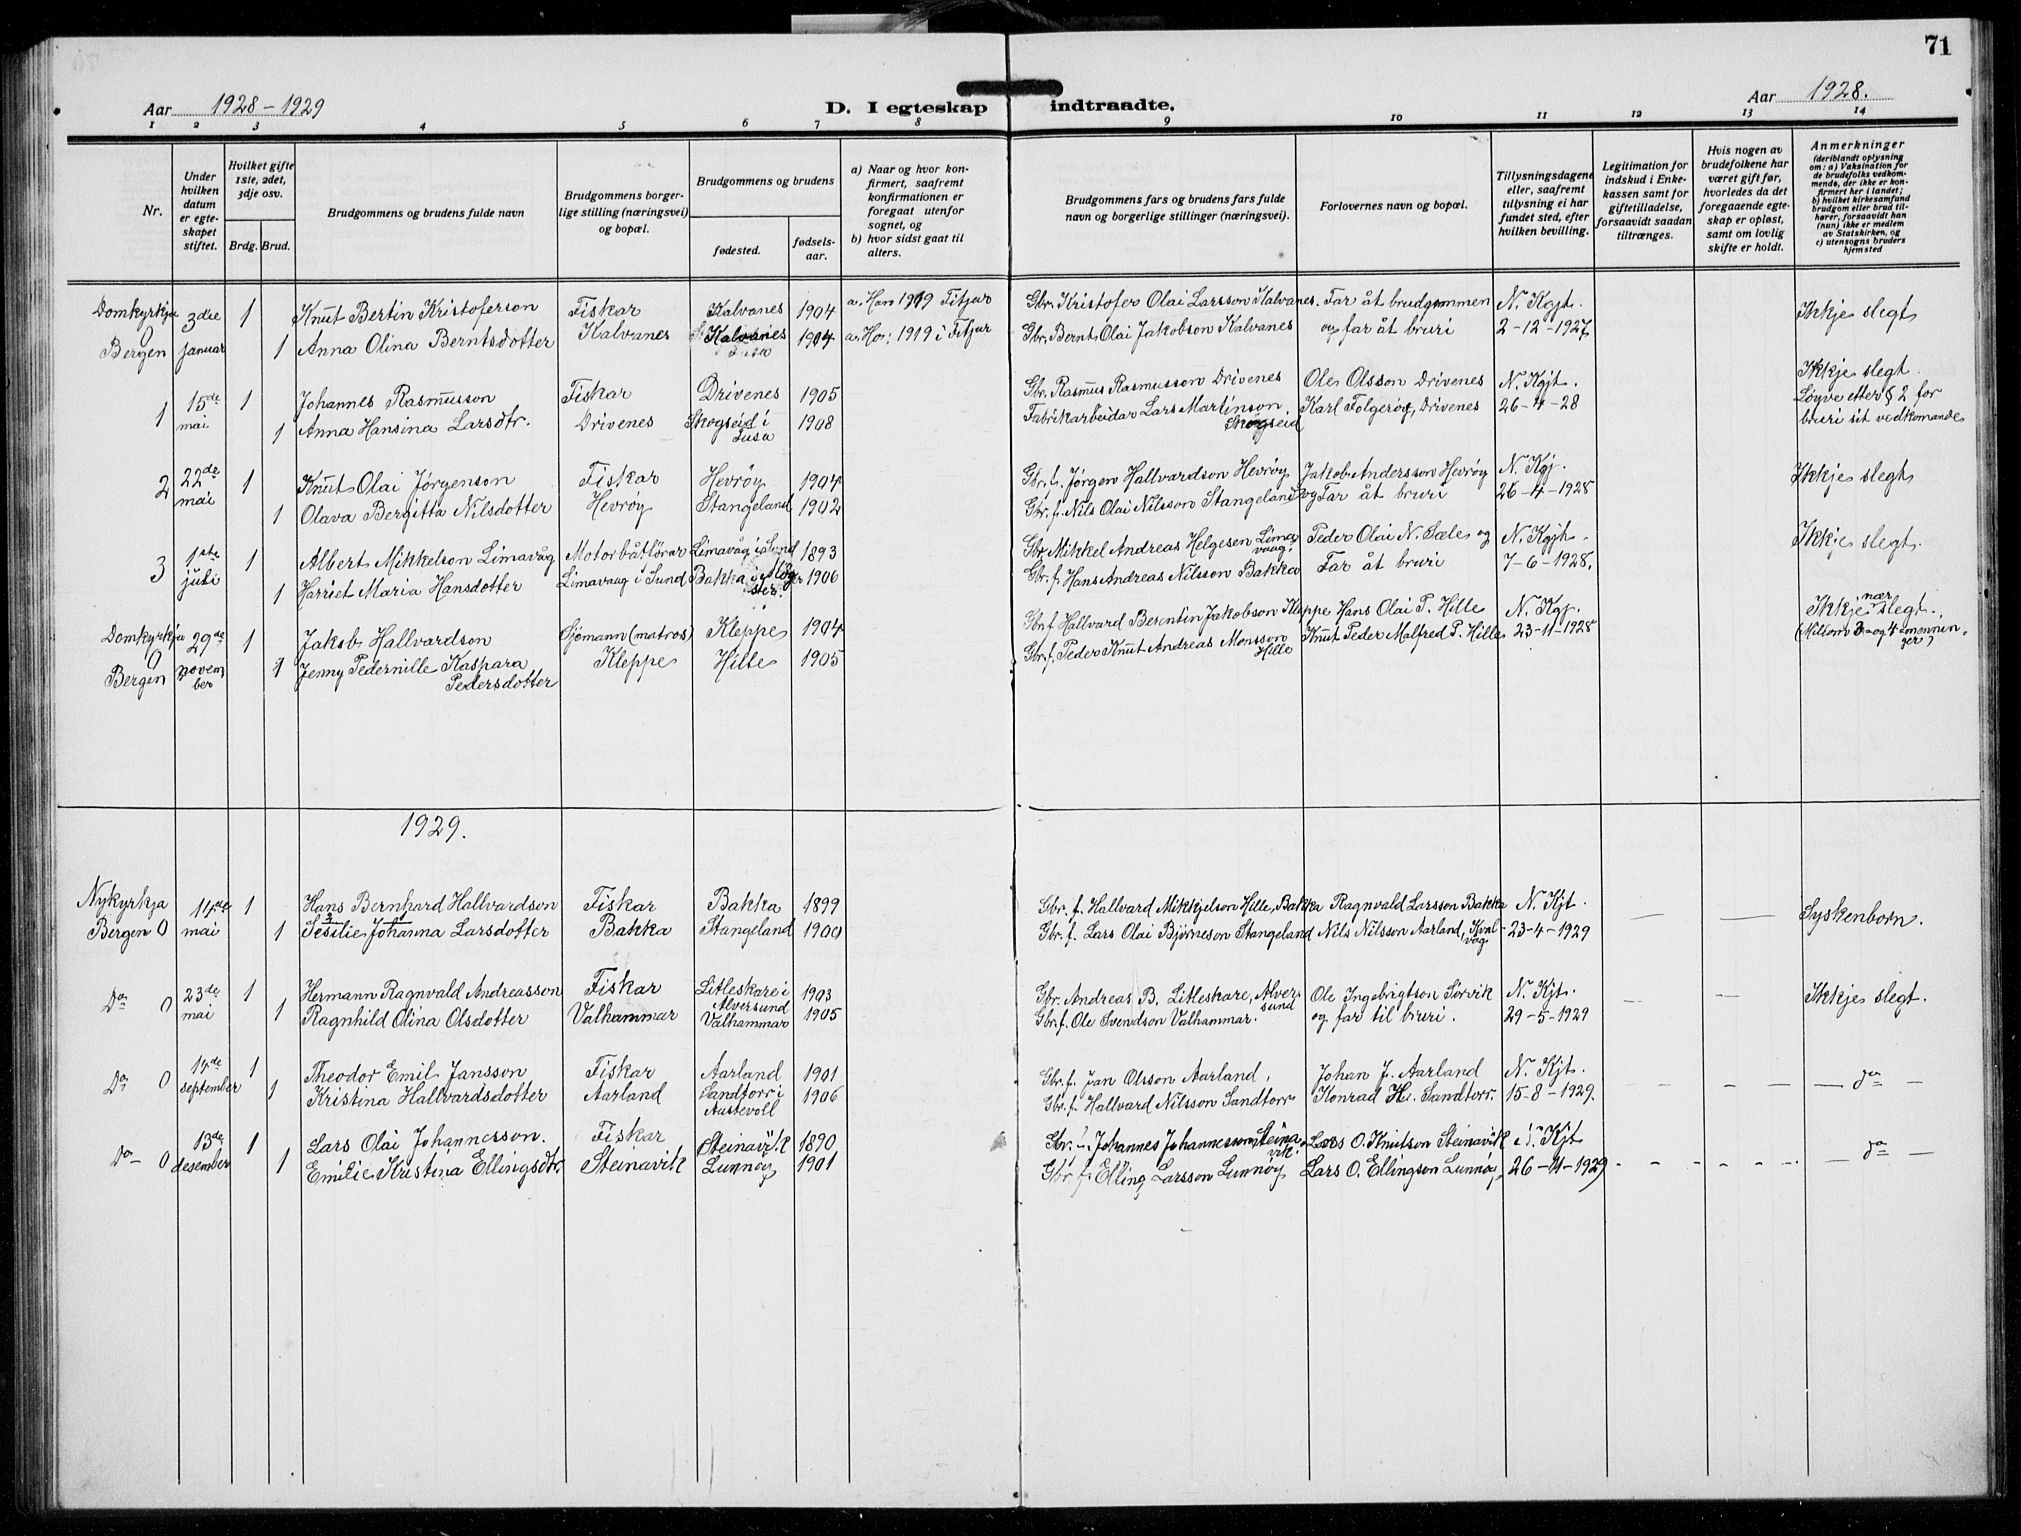 71
Aar 1928 - 1929
D. I egteskap indtraadte.
Aar 1928.
1 2 3 4 5 6 7 8 9 10 11 12 13 14
Nr.
Under hvilken datum er egteskapet stiftet.
Hvilket gifte 1ste, 2det, 3dje osv.
Brdg. Brud.
Brudgommens og brudens fulde navn
Brudgommens borgerlige stilling (næringsvei) og bopæl.
Brudgommens og brudens
fødested.
fødselsaar.
a) Naar og hvor konfirmert, saafremt konfirmationen er foregaat utenfor sognet, og
b) hvor sidst gaat til alters.
Brudgommens fars og brudens fars fulde navn og borgerlige stillinger (næringsvei).
Forlovernes navn og bopæl.
Tillysningsdagene eller, saafremt tillysning ei har fundet sted, efter hvilken bevilling.
Legitimation for indskud i Enkekassen samt for giftetilladelse, forsaavidt saadan tiltrænges.
Hvis nogen av brudefolkene har været gift før, hvorledes da det foregaaende egteskap er opløst, samt om lovlig skifte er holdt.
Anmerkninger
(deriblandt oplysning om: a) Vaksination for de brudefolks vedkommende, der ikke er konfirmert her i landet; b) hvilket kirkesamfund brudgom eller brud tilhører, forsaavidt han (hun) ikke er medlem av Statskirken, og c) utensogns bruders hjemsted
Domkyrkja 3die 1 Knut Bertin Kristoferson Fiskar Kalvanes 1904 a. Hor 1919 Fitjar Gbr. Kristofer Olai Larsson Kalvanes. Far åt brudgommen N. Kgjt. Ikkje slegt
0
Bergen januar 1 Anna Olina Berntsdotter Kalvanes Kalvanes 1904 a. Hor: 1919 i Fitjar Gbr. Bernt Olai Jakobson Kalvanes og far åt bruri 2-12-1927
1 15de mai 1 Johannes Rasmusson Fiskar Drivenes 1905 Gbr. Rasmus Rasmusson Drivenes Ole Olsson Drivenes N. Kgjt. Ikkje slegt.
1 Anna Hansina Larsdtr. Drivenes Skogseid i Fusa 1908 Fabrikarbeidar Lars Martinson Skogseid Karl Folgerøy, Drivenes 26-4-28 Løyve etter § 2 for bruri sit vedkomande
2 22de mai 1 Knut Olai Jørgenson Fiskar Hevrøy 1904 Gbr. f. Jørgen Hallvardson Hevrøy Jakob Andersson Hevrøy N. Kgj. Ikkje slegt
1 Olava Bergitta Nilsdotter Hevrøy Stangeland 1902 Gbr. f. Nils Olai Nilsson Stangeland og Far åt bruri 26-4-1928
3 1ste juli 1 Albert Mikkelson Limavåg Motorbåtførar Limavåg i Sund 1893 Gbr. Mikkel Andreas Helgesen Limavaag. Peder Olai N. Sæle og N. Kgjt. Ikkje slegt.
1 Harriet Maria Hansdotter Limavaag i Sund Bakka i Møgster. 1906 Gbr. f. Hans Andreas Nilsson Bakka Far åt bruri 7-6-1928.
Domkyrkja 29de 1 Jakob Hallvardson Sjømann (matros) Kleppe 1904 Gbr. f. Hallvard Berentin Jakobson Kleppe Hans Olai P. Hille N. Kgj. Ikkje nær slegt.
0
Bergen november 1 Jenny Pedernille Kaspara Pedersdotter Kleppe Hille 1905 Gbr. f. Peder Knut Andreas Monsson Hille Knut Peder Malfred P. Hille 23-11-1928 (Millom 3 og 4 menninger)
1929.
Nykyrkja 14de 1 Hans Bernhard Hallvardson Fiskar Bakka 1899 Gbr. f. Hallvard Mikkjelson Hille, Bakka Ragnvald Larsson Bakka N. Kjt. — — Syskenborn.
Bergen 0 mai 1 Sesilie Johanna Larsdotter Bakka Stangeland 1900 Gbr. f. Lars Olai Bjørneson Stangeland Nils Nilsson Aarland, Kvalvåg 23-4-1929
Do 0 23de mai 1 Hermann Ragnvald Andreasson Fiskar Litleskare i Alversund 1903 Gbr. Andreas B. Litleskare, Alversund Ole Ingebrigtson Sørvik N. Kjt. — — Ikkje slegt.
1 Ragnhild Olina Olsdotter Valhammar Valhammar 1905 Gbr. f. Ole Svendson Valhammar. og far til bruri. 29-5-1929
Do 0 14de september 1 Theodor Emil Jansson Fiskar Aarland 1901 Gbr. f. Jan Olsson Aarland, Johan J. Aarland N. Kjt. — do —
1 Kristina Hallvardsdotter Aarland Sandtorr i Austevoll 1906 Gbr. f. Hallvard Nilsson Sandtorr Konrad H. Sandtorr. 15-8-1929.
Do 0 13de desember 1 Lars Olai Johannesson. Fiskar Steinavik 1890 Gbr. f. Johannes Johannesson Steinavik. Lars O. Knutson Steinavik N. Kjt — do —
1 Emilie Kristina Ellingsdtr. Steinavik Lunnøy 1901 Gbr. f. Elling Larsson Lunnøy Lars O. Ellingson Lunnøy 26-11-1929